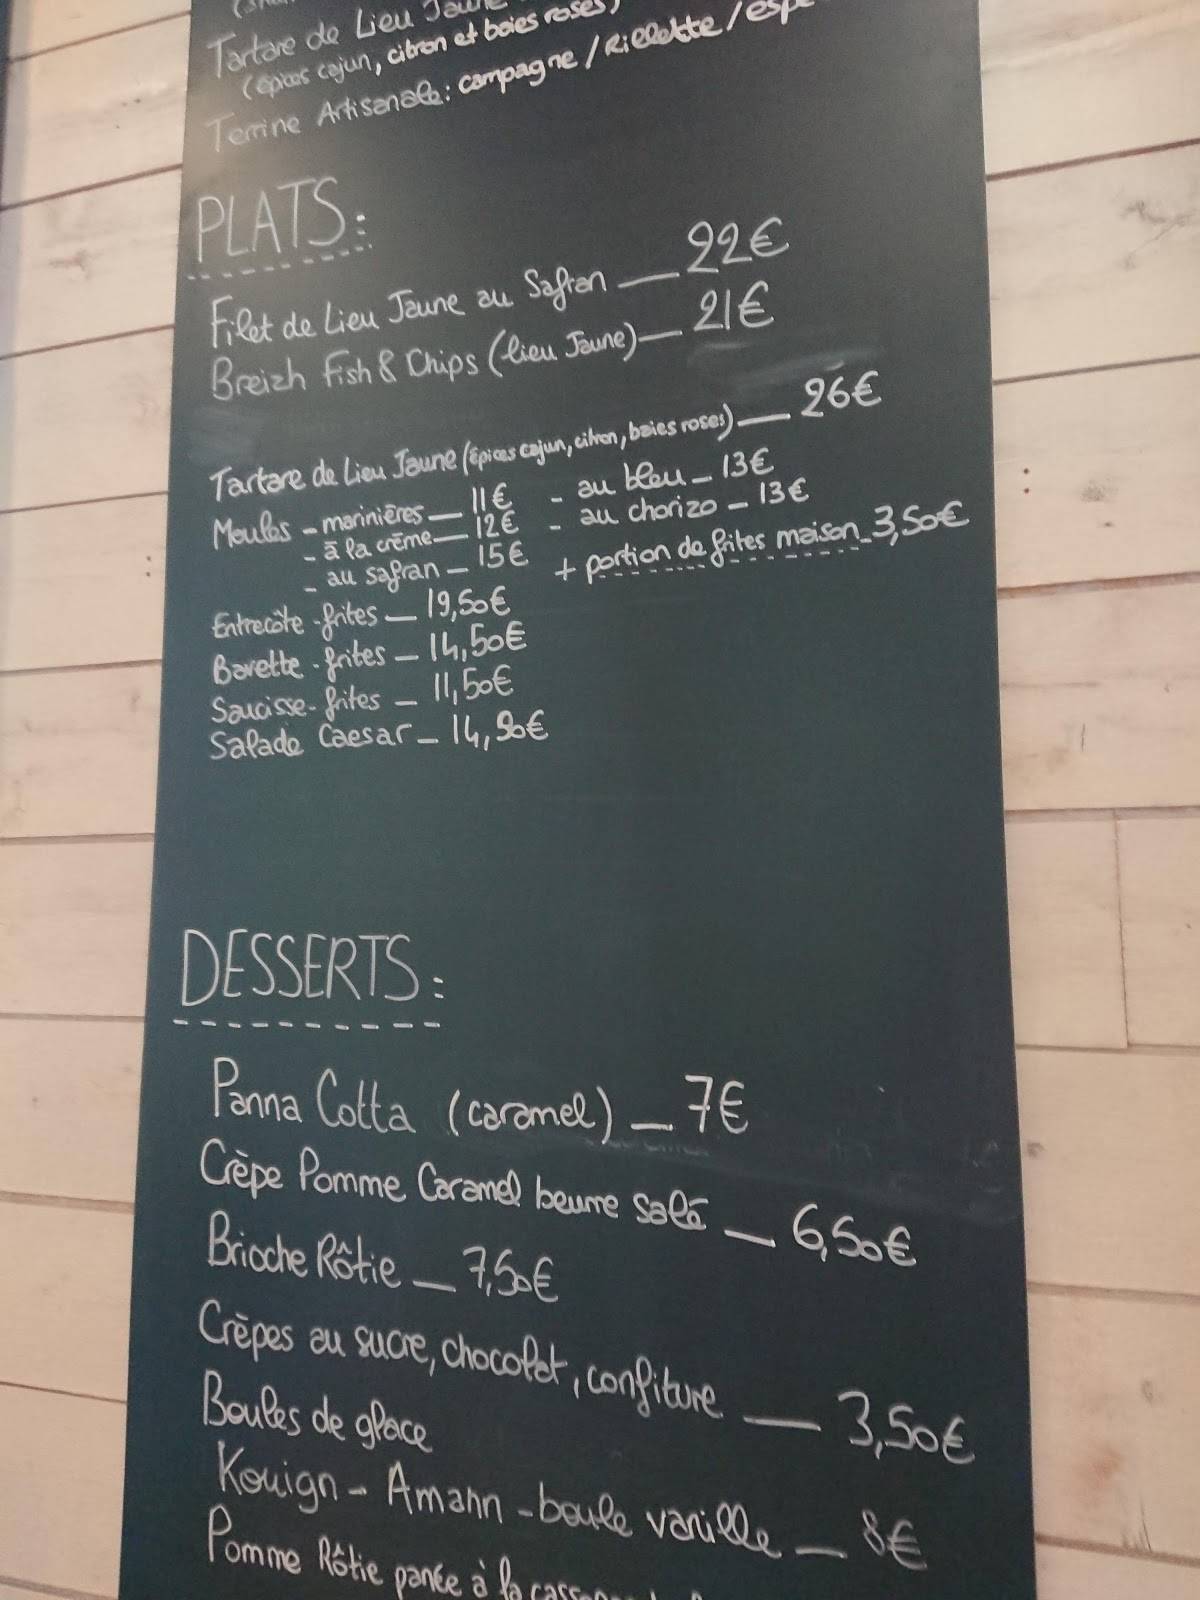 Tartare de Lieu Jaune
(épices cajun, citron et baies roses)
Terrine Artisanale: campagne / Rillette /
PLATS:
Filet de Lieu Jaune au Safran — 22€
Breizh Fish & Chips (lieu Jaune) — 21€
Tartare de Lieu Jaune (épices cajun, citron, baies roses) — 26€
Moules - marinières — 11€ - au bleu — 13€
- à la crême — 12€ - au chorizo — 13€
- au safran — 15€ + portion de frites maison — 3,50€
Entrecôte - frites — 19,50€
Bavette - frites — 14,50€
Saucisse - frites — 11,50€
Salade Caesar — 14,50€
DESSERTS:
Panna Cotta (caramel) — 7€
Crèpe Pomme Caramel beurre salé — 6,50€
Brioche Rôtie — 7,50€
Crèpes au sucre, chocolat, confiture — 3,50€
Boules de glace
Kouign - Amann - boule vanille — 8€
Pomme Rôtie panée à la